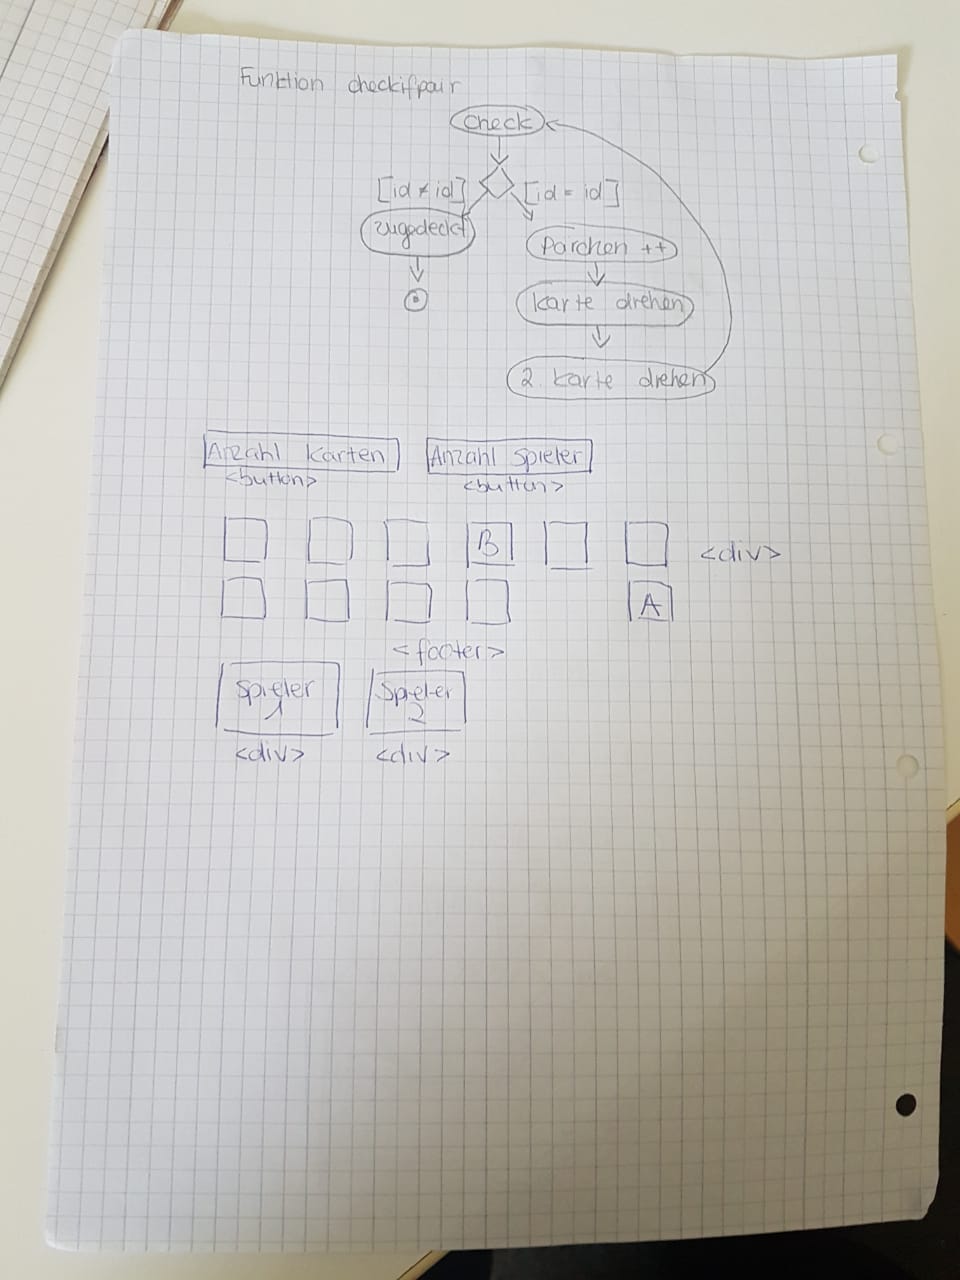 Funktion checkifpair
check
[id ≠ id] [id = id]
zugedeckt
Pärchen ++
karte drehen
2. karte drehen
Anzahl Karten Anzahl Spieler
<button> <button>
B
<div>
A
<footer>
Spieler 1 Spieler 2
<div> <div>